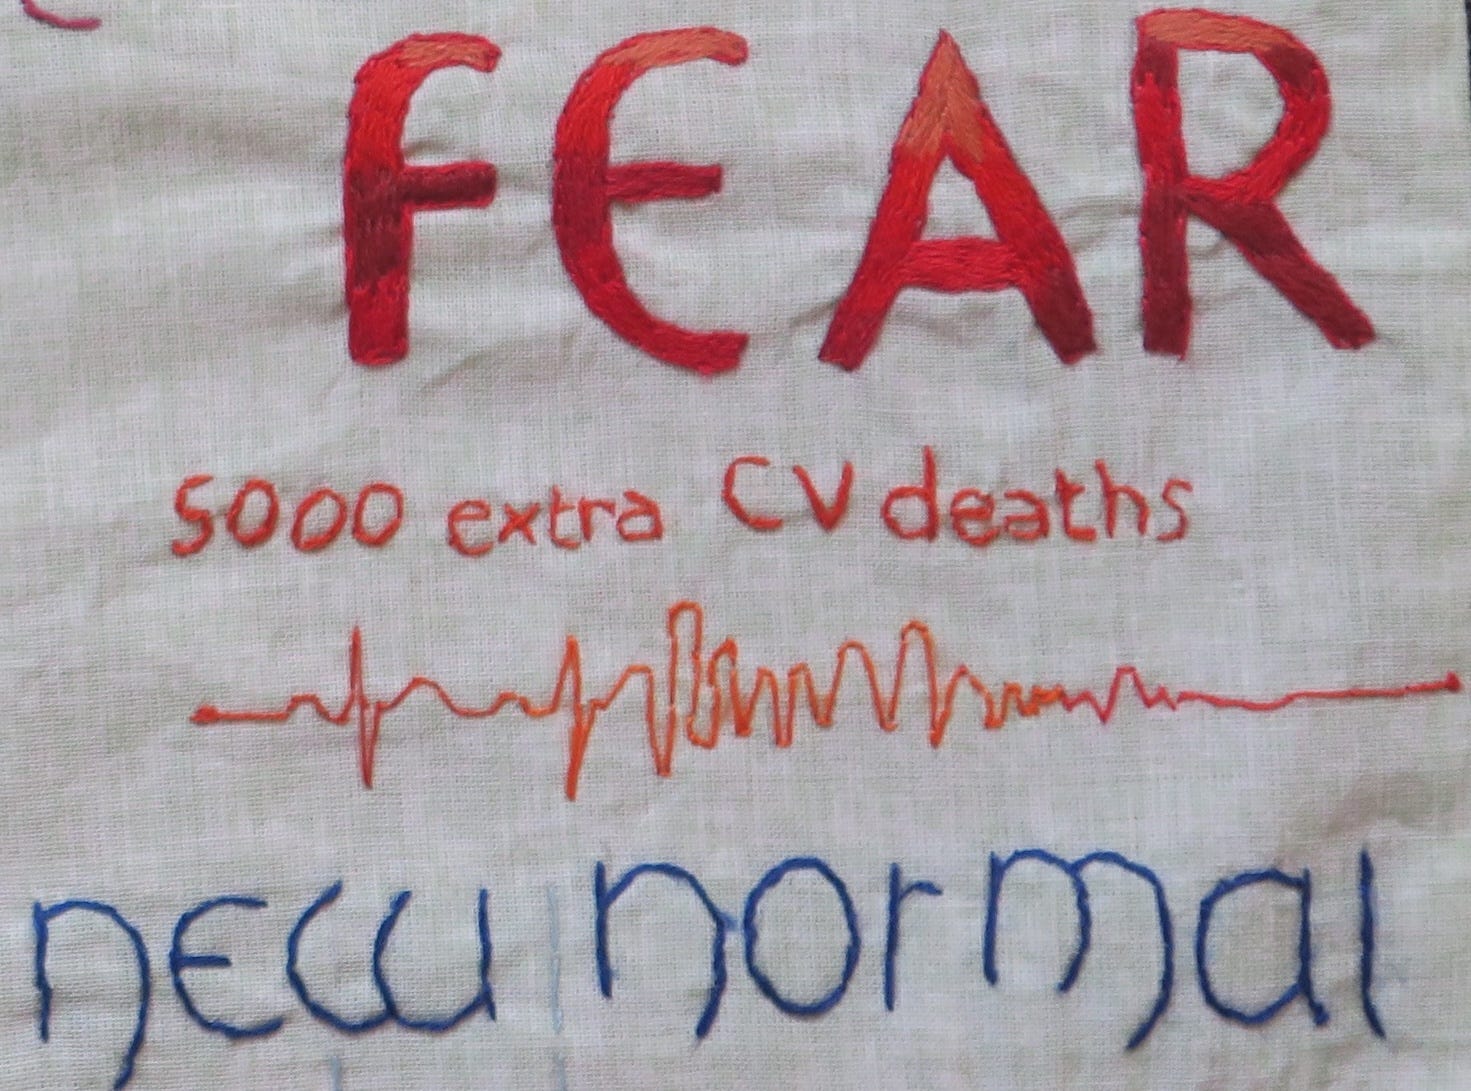 FEAR
5000 extra CV deaths
new normal